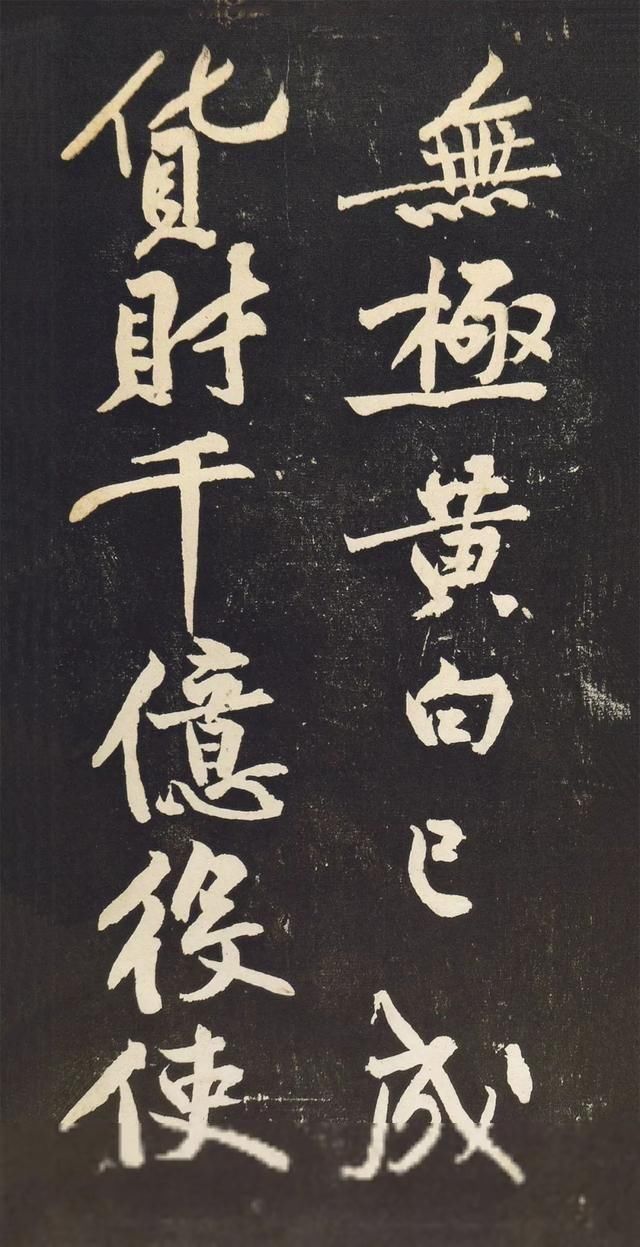 無極黄白已成
貨財千億役使